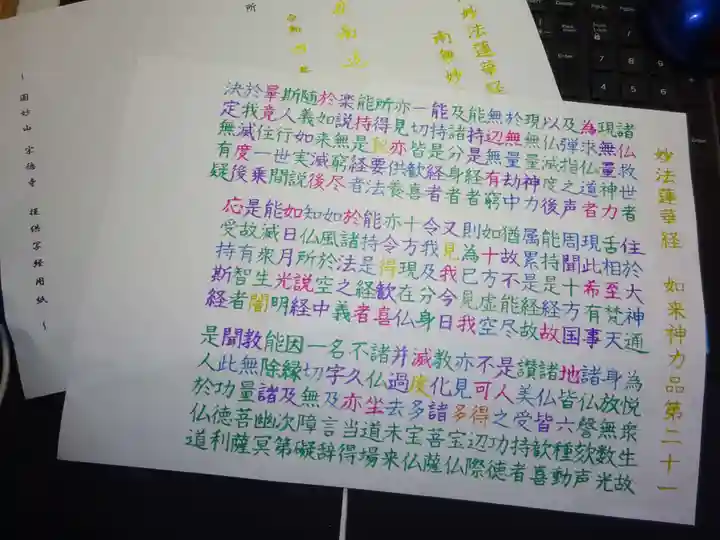 妙法蓮華経 如来神力品第二十一
諸仏救世者 住於大神通 為悦衆生故
現無量神力 舌相至梵天 身放無数光
為求仏道者 現此希有事 諸仏謦欬声
及弾指之声 周聞十方国 地皆六種動
以仏滅度後 能持是経故 諸仏皆歓喜
現無量神力 属累是経故 讃美受持者
於無量劫中 猶故不能尽 是人之功徳
無辺無有窮 如十方虚空 不可得辺際
能持是経者 則為已見我 亦見多宝仏
及諸分身者 又見我今日 教化諸菩薩
能持是経者 令我及分身 滅度多宝仏
一切皆歓喜 十方現在仏 并過去未来
亦見亦供養 亦令得歓喜 諸仏坐道場
所得秘要法 能持是経者 不久亦当得
能持是経者 於諸法之義 名字及言辞
楽説無窮尽 如風於空中 一切無障礙
於如来滅後 知仏所説経 因縁及次第
随義如実説 如日月光明 能除諸幽冥
斯人行世間 能滅衆生闇 教無量菩薩
畢竟住一乗 是故有智者 聞此功徳利
於我滅度後 応受持斯経 是人於仏道
決定無有疑
妙法蓮華経
南無妙
所
~ 圓妙山 宗徳寺 提供写経用紙 ~